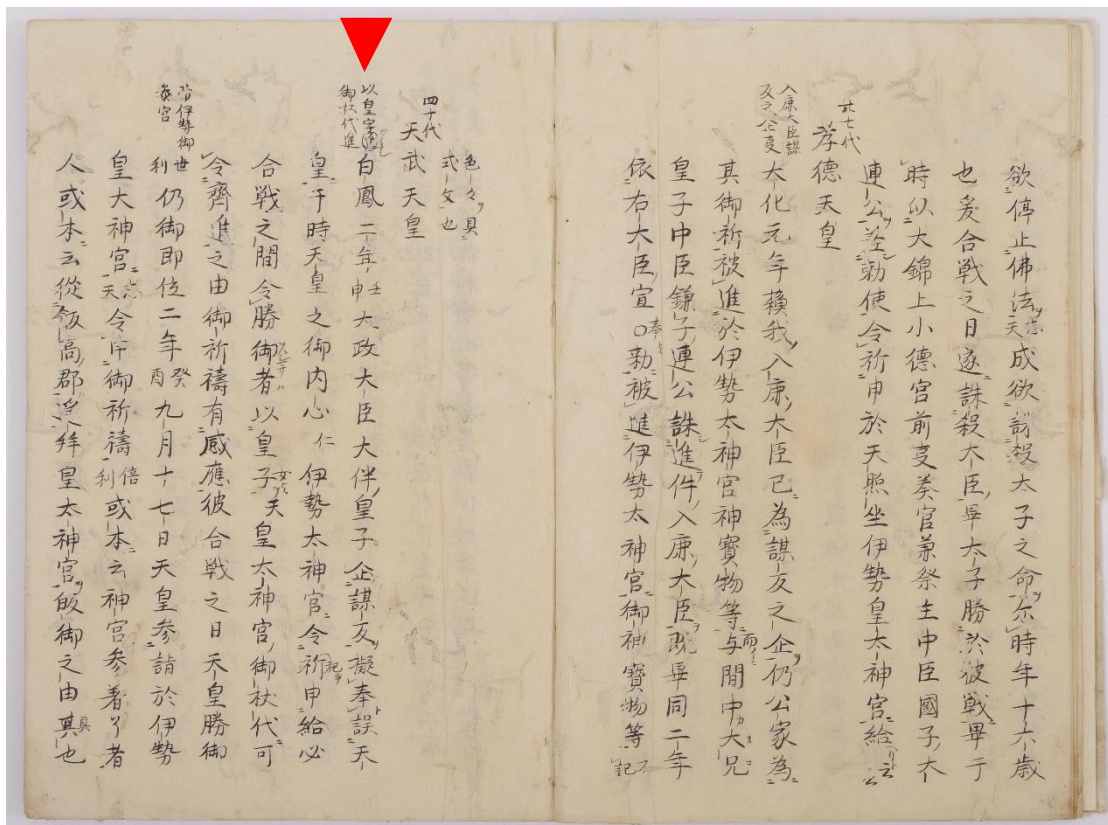 欲停止佛法天成欲討殺太子之命尓時年十六歳
也爰合戦之日遂誅殺大臣畢太子勝於彼戦畢于
時以大錦上小徳官前事奏官兼祭主中臣國子大
連公差勅使令祈申於天照坐伊勢皇太神宮給
卅七代
孝徳天皇
入鹿大臣謀
反之企事
大化元年蘓我入鹿大臣已為謀反之企仍公家為
其御祈被進於伊勢太神宮神寳物等与間中大兄
皇子中臣鎌子連公誅進件入鹿大臣既畢同二年
依右大臣宣奉勅被進伊勢太神宮御神寳物等不記
色々具
式文也
四十代
天武天皇
以皇字
御杖代進
白鳳二年壬申大政大臣大伴皇子企謀反擬奉誤天
皇于時天皇之御内心仁伊勢太神宮令祈申給必
合戦之間令勝御者以皇子天皇太神宮御杖代可
令齊進之由御祈禱有感應彼合戦之日天皇勝御
伊勢御
世利仍御即位二年癸酉九月十七日天皇参詣於伊勢
皇大神宮天令申御祈禱倍利或本云神宮参着了者
人或本云從飯高郡遥拜皇太神宮飯御之由具也